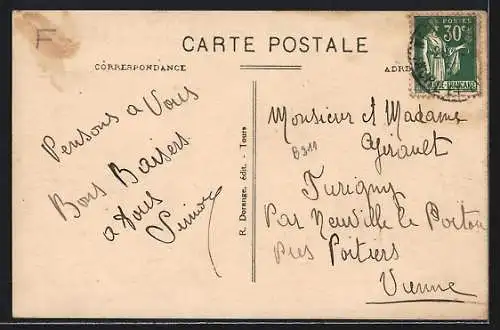 F
CARTE POSTALE
CORRESPONDANCE
POSTES
30c
Pensons a Vous
Bons Baisers
a tous
R. Dorange, édit. - Tours
Monsieur et Madame
Girault
B910
Furigny
Par Neuville le Poitou
Près Poitiers
Vienne